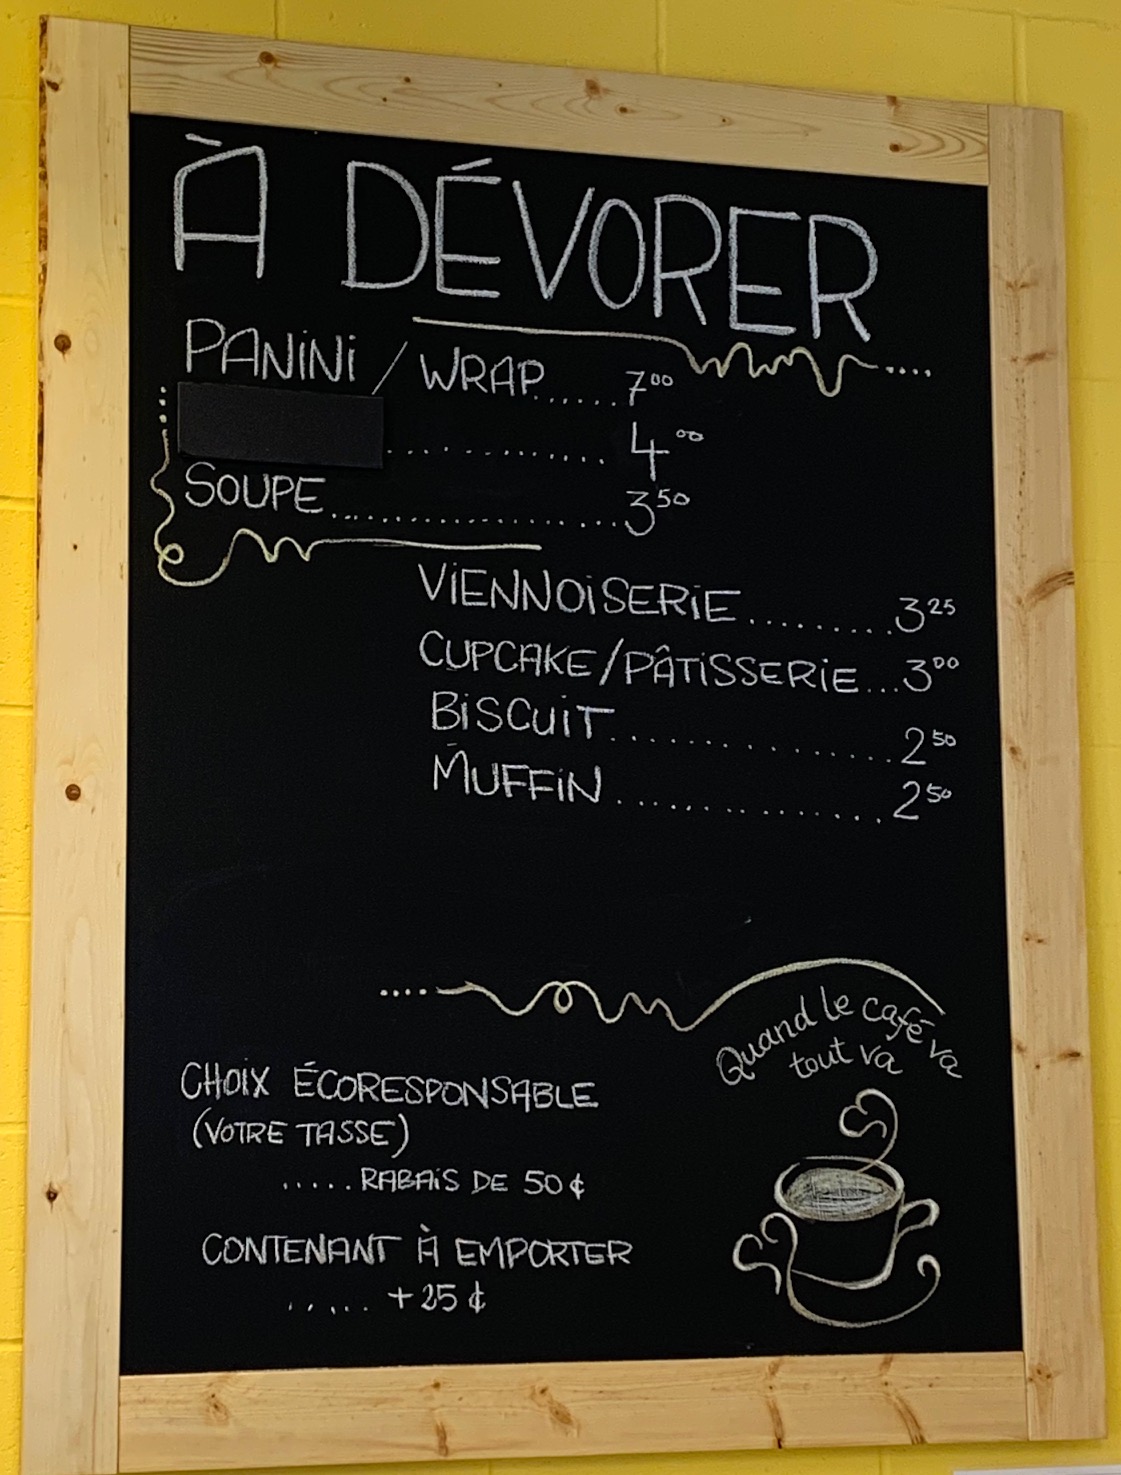 À DÉVORER
PANiNi / WRAP......7⁰⁰
.............. 4⁰⁰
SOUPE....................3⁵⁰
ViENNOiSERiE..........3²⁵
CUPCAKE/PÂTiSSERiE...3⁰⁰
BiSCUiT.................2⁵⁰
MUFFiN................2⁵⁰
Quand le café va
tout va
CHOiX ÉCORESPONSABLE
(VOTRE TASSE)
.....RABAiS DE 50¢
CONTENANT À EMPORTER
......+25¢